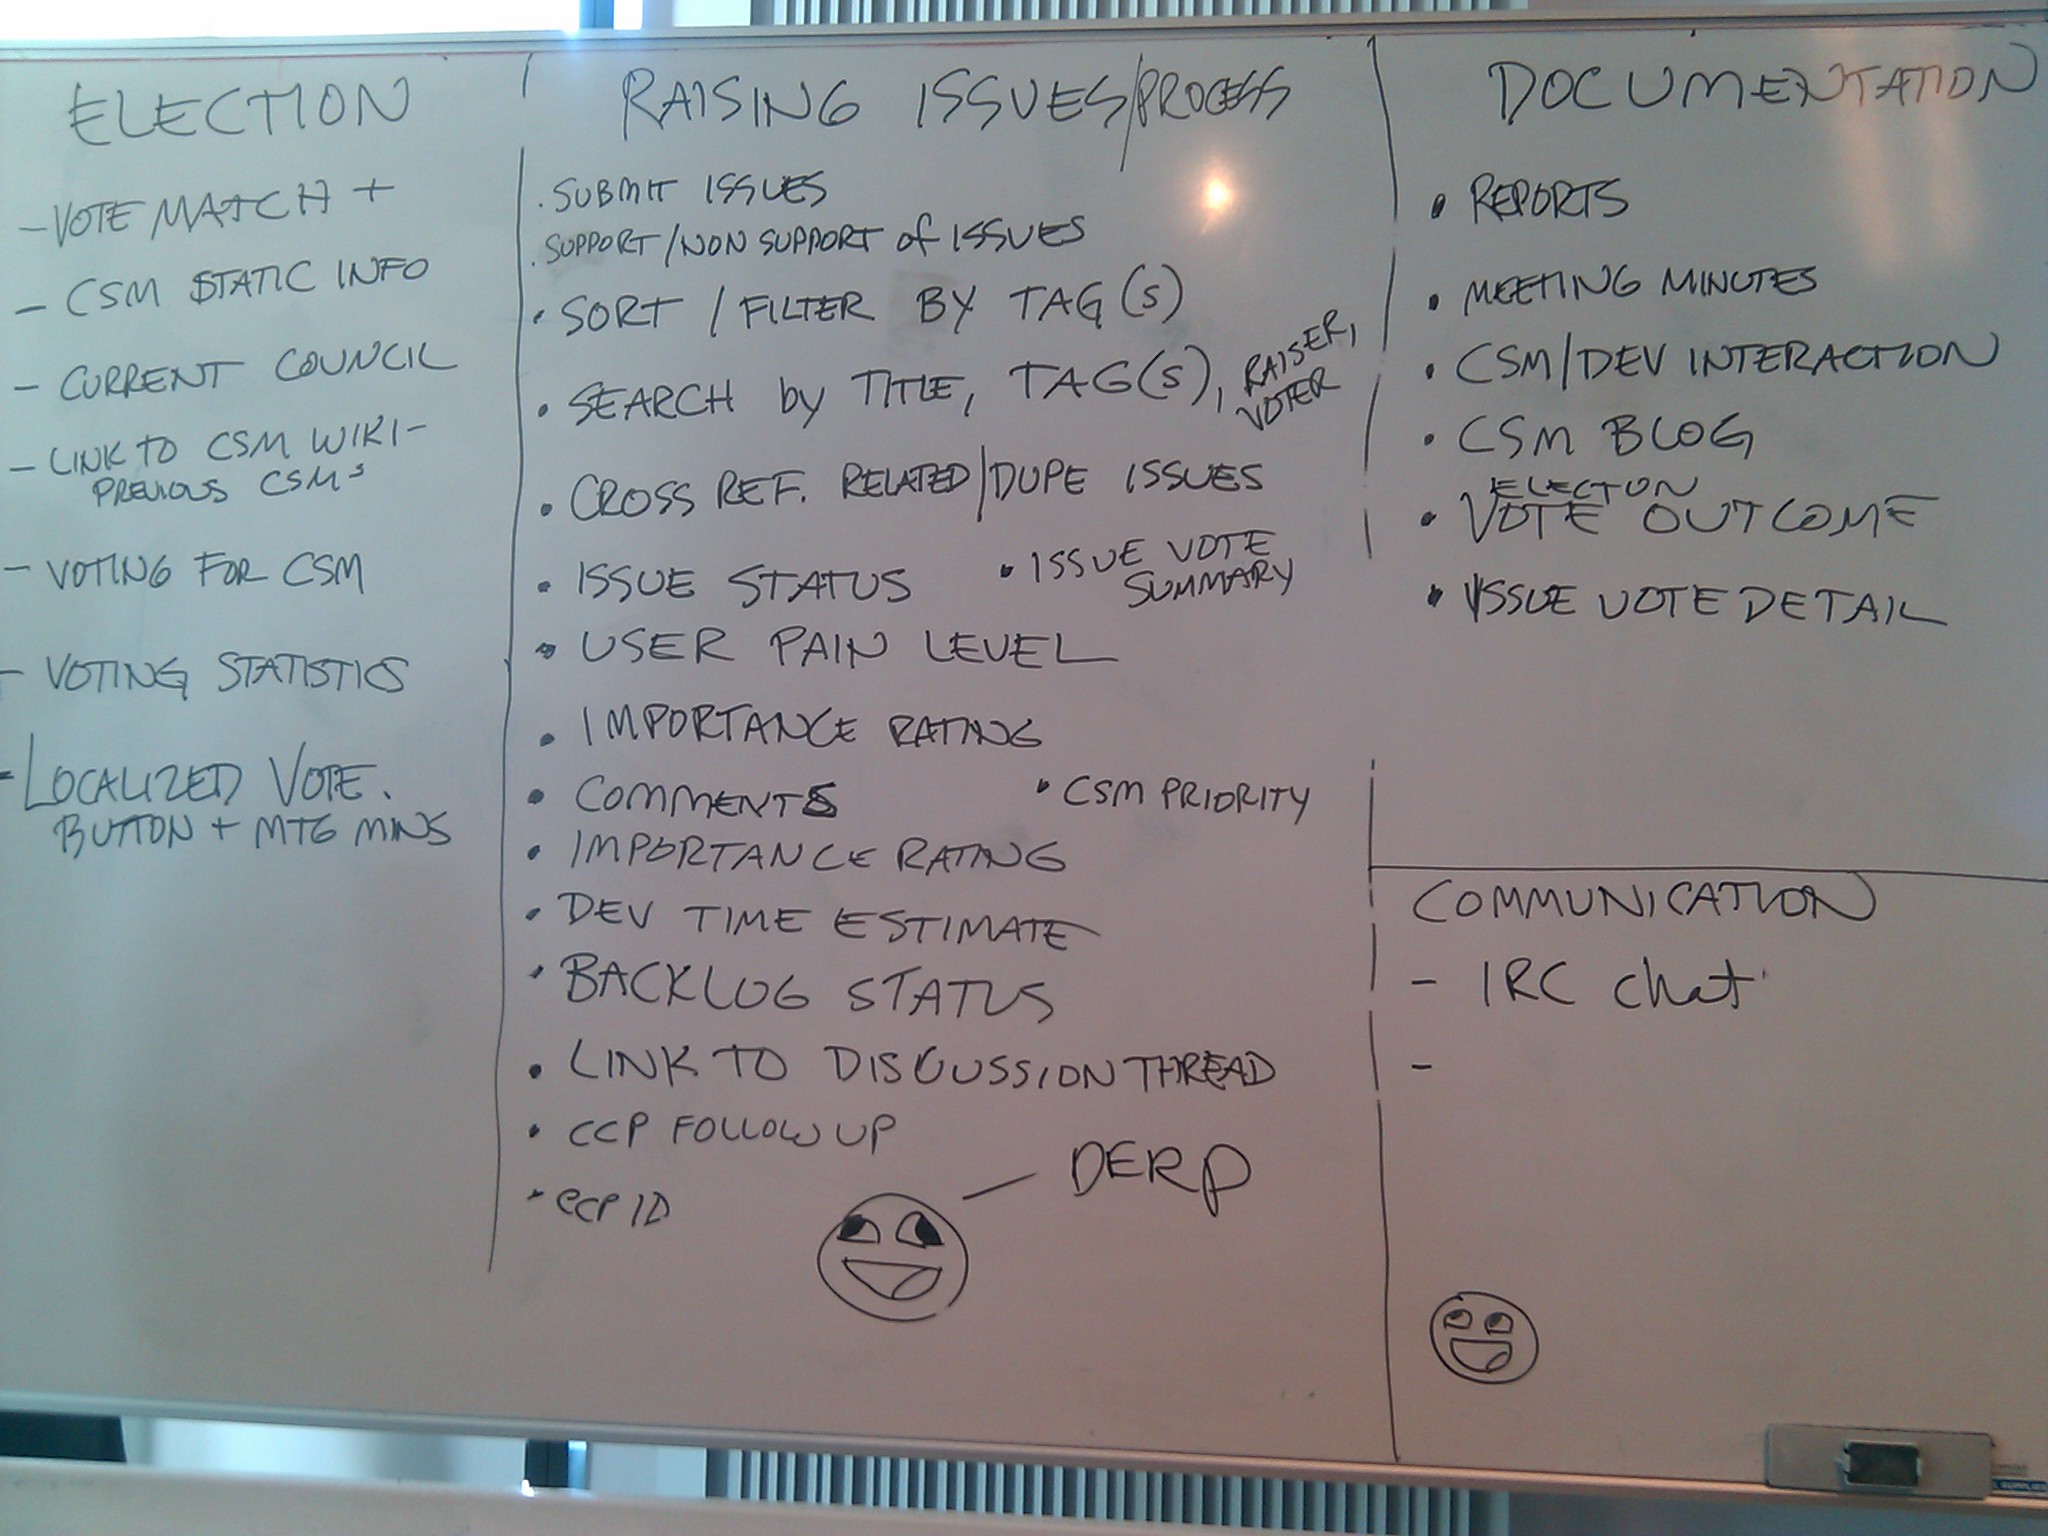 ELECTION
- VOTE MATCH +
- CSM STATIC INFO
- CURRENT COUNCIL
- LINK TO CSM WIKI -
PREVIOUS CSMs
- VOTING FOR CSM
- VOTING STATISTICS
- LOCALIZED VOTE.
BUTTON + MTG MINS
RAISING ISSUES/PROCESS
. SUBMIT ISSUES
. SUPPORT/NON SUPPORT of ISSUES
• SORT / FILTER BY TAG(S)
• SEARCH by TITLE, TAG(S), RAISER,
VOTER
• CROSS REF. RELATED/DUPE ISSUES
• ISSUE STATUS
• ISSUE VOTE
SUMMARY
• USER PAIN LEVEL
• IMPORTANCE RATING
• COMMENTS
• CSM PRIORITY
• IMPORTANCE RATING
• DEV TIME ESTIMATE
• BACKLOG STATUS
• LINK TO DISCUSSION THREAD
• CCP FOLLOW UP
• CCP ID
DERP
DOCUMENTATION
• REPORTS
• MEETING MINUTES
• CSM/DEV INTERACTION
• CSM BLOG
ELECTON
• VOTE OUTCOME
• ISSUE VOTE DETAIL
COMMUNICATION
- IRC chat
-